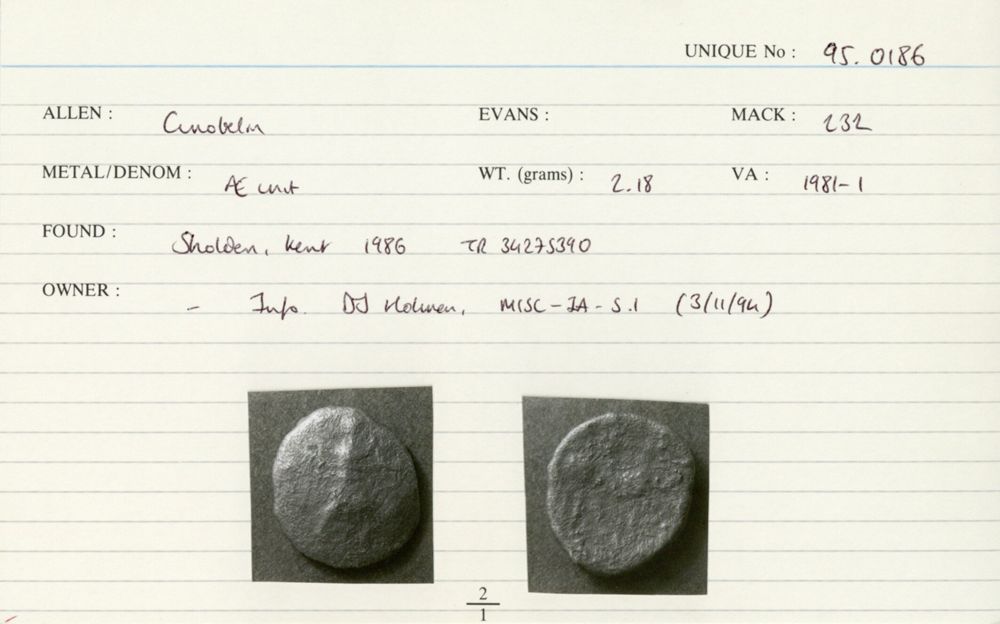 UNIQUE No : 95. 0186
ALLEN : Cunobelin EVANS : MACK : 232
METAL/DENOM : Æ unit WT. (grams) : 2.18 VA : 1981-1
FOUND : Sholden, Kent 1986 TR 34275390
OWNER : - Info. DJ Holman, MISC-IA-S.1 (3/11/94)
2
1